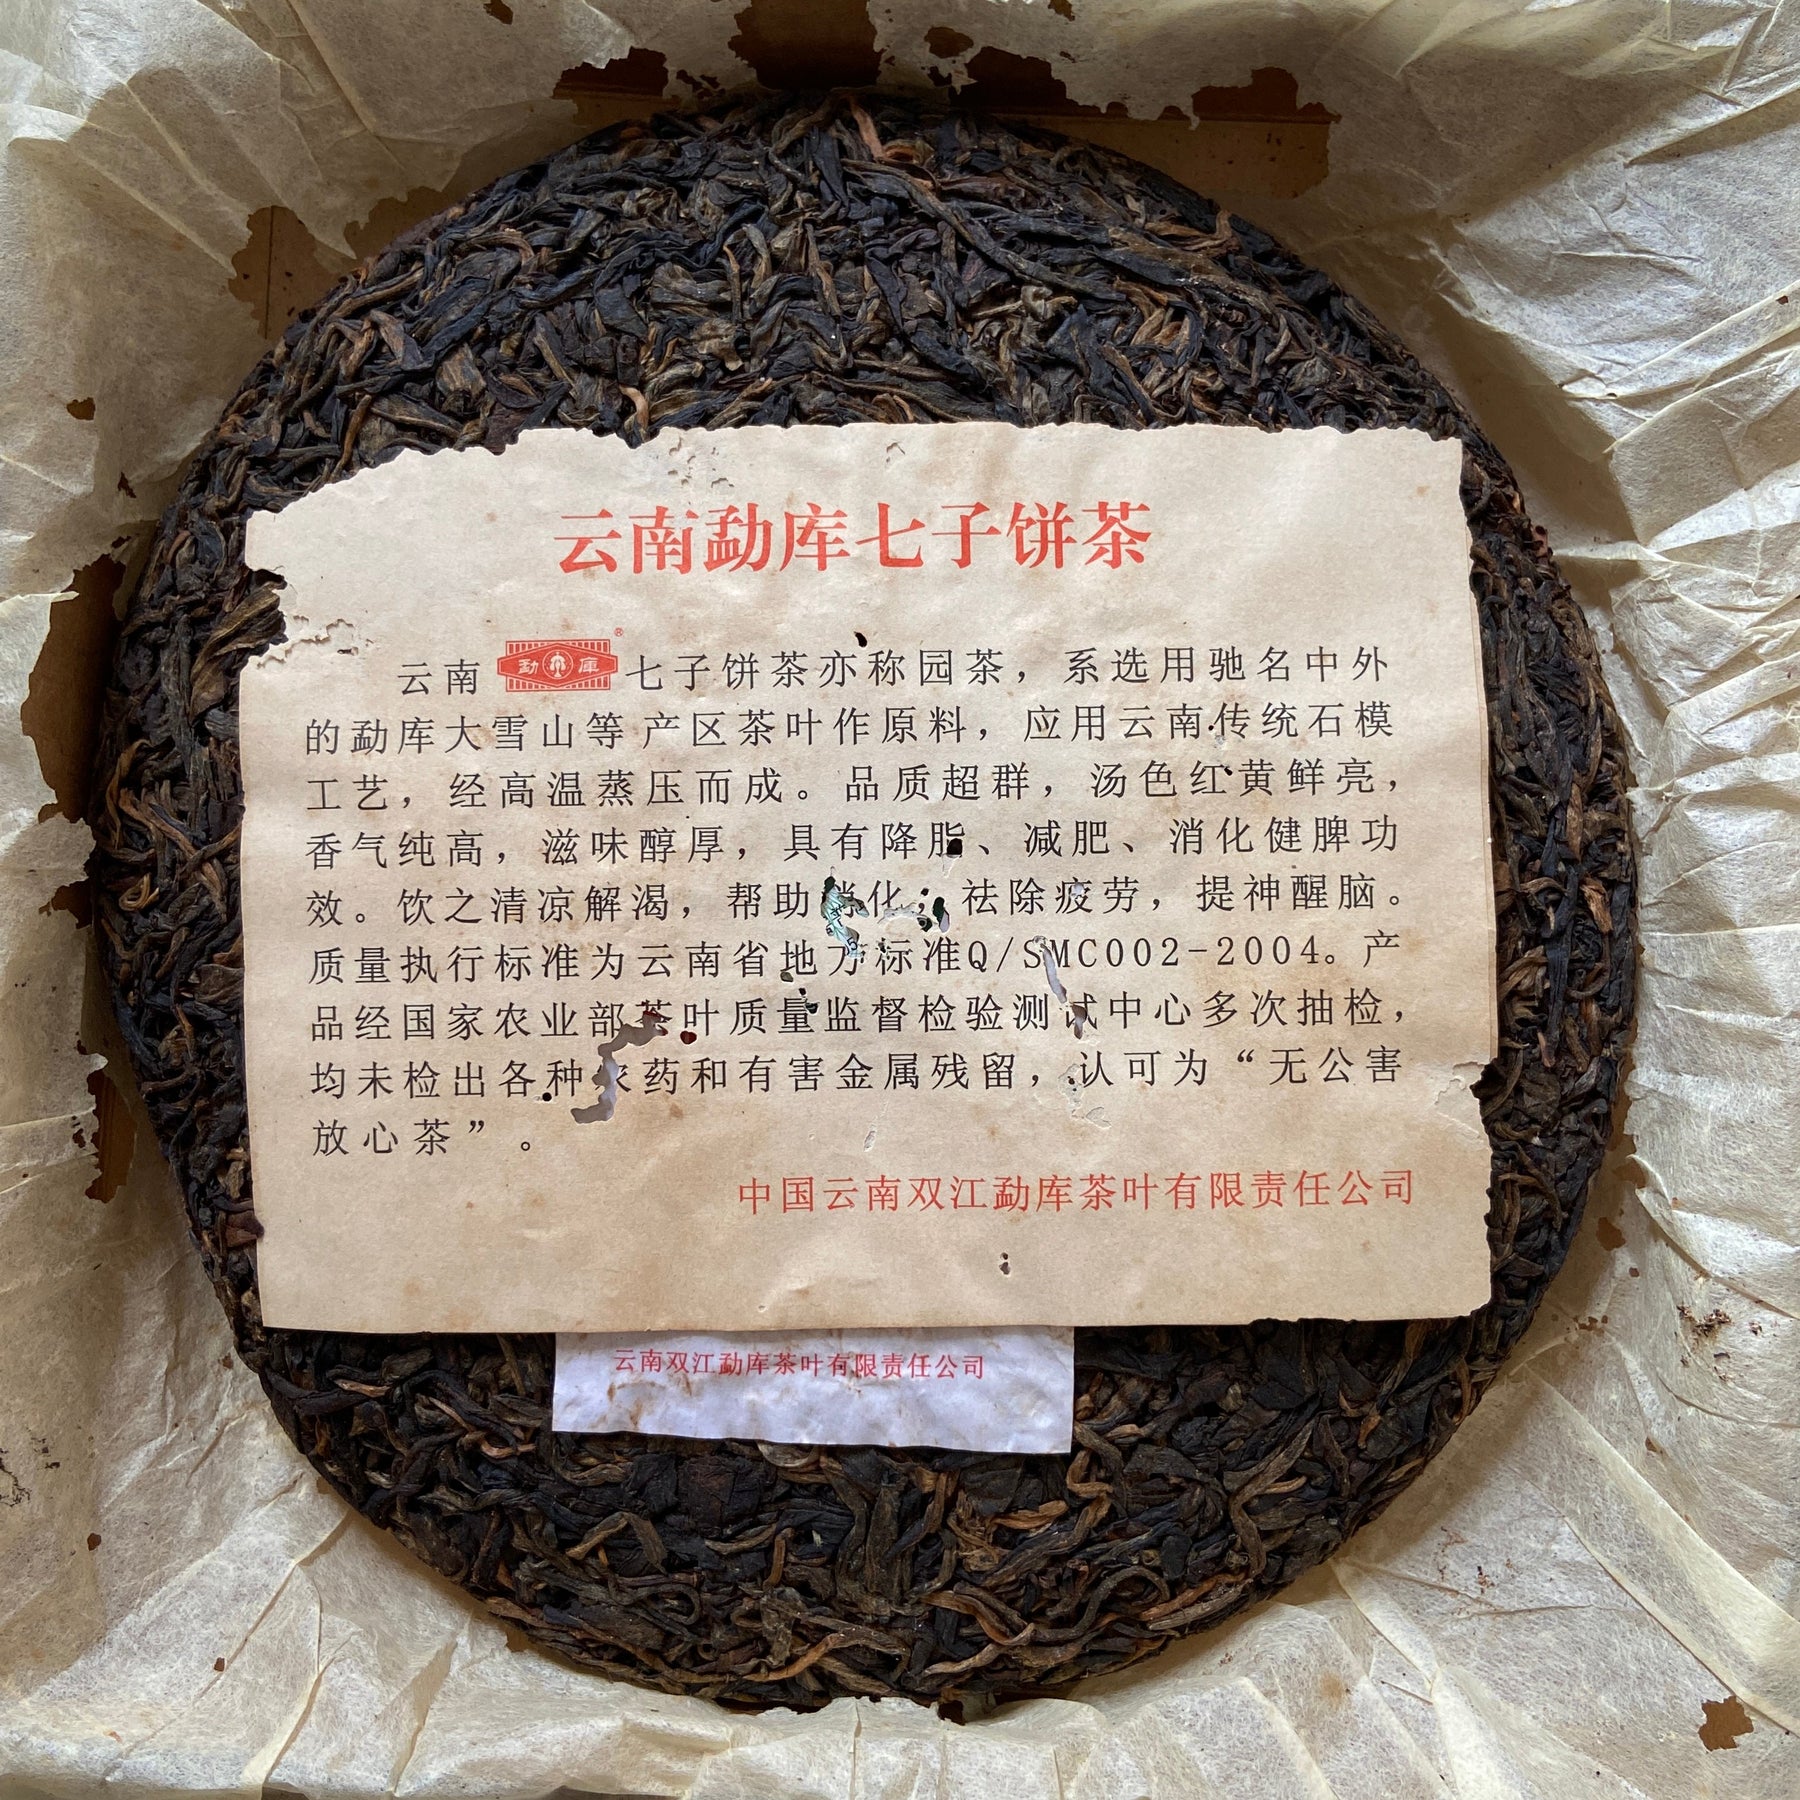 云南勐库七子饼茶
云南 勐库® 七子饼茶亦称园茶，系选用驰名中外
的勐库大雪山等产区茶叶作原料，应用云南传统石模
工艺，经高温蒸压而成。品质超群，汤色红黄鲜亮，
香气纯高，滋味醇厚，具有降脂、减肥、消化健脾功
效。饮之清凉解渴，帮助消化，祛除疲劳，提神醒脑。
质量执行标准为云南省地方标准Q/SMC002-2004。产
品经国家农业部茶叶质量监督检验测试中心多次抽检，
均未检出各种农药和有害金属残留，认可为“无公害
放心茶”。
中国云南双江勐库茶叶有限责任公司
云南双江勐库茶叶有限责任公司